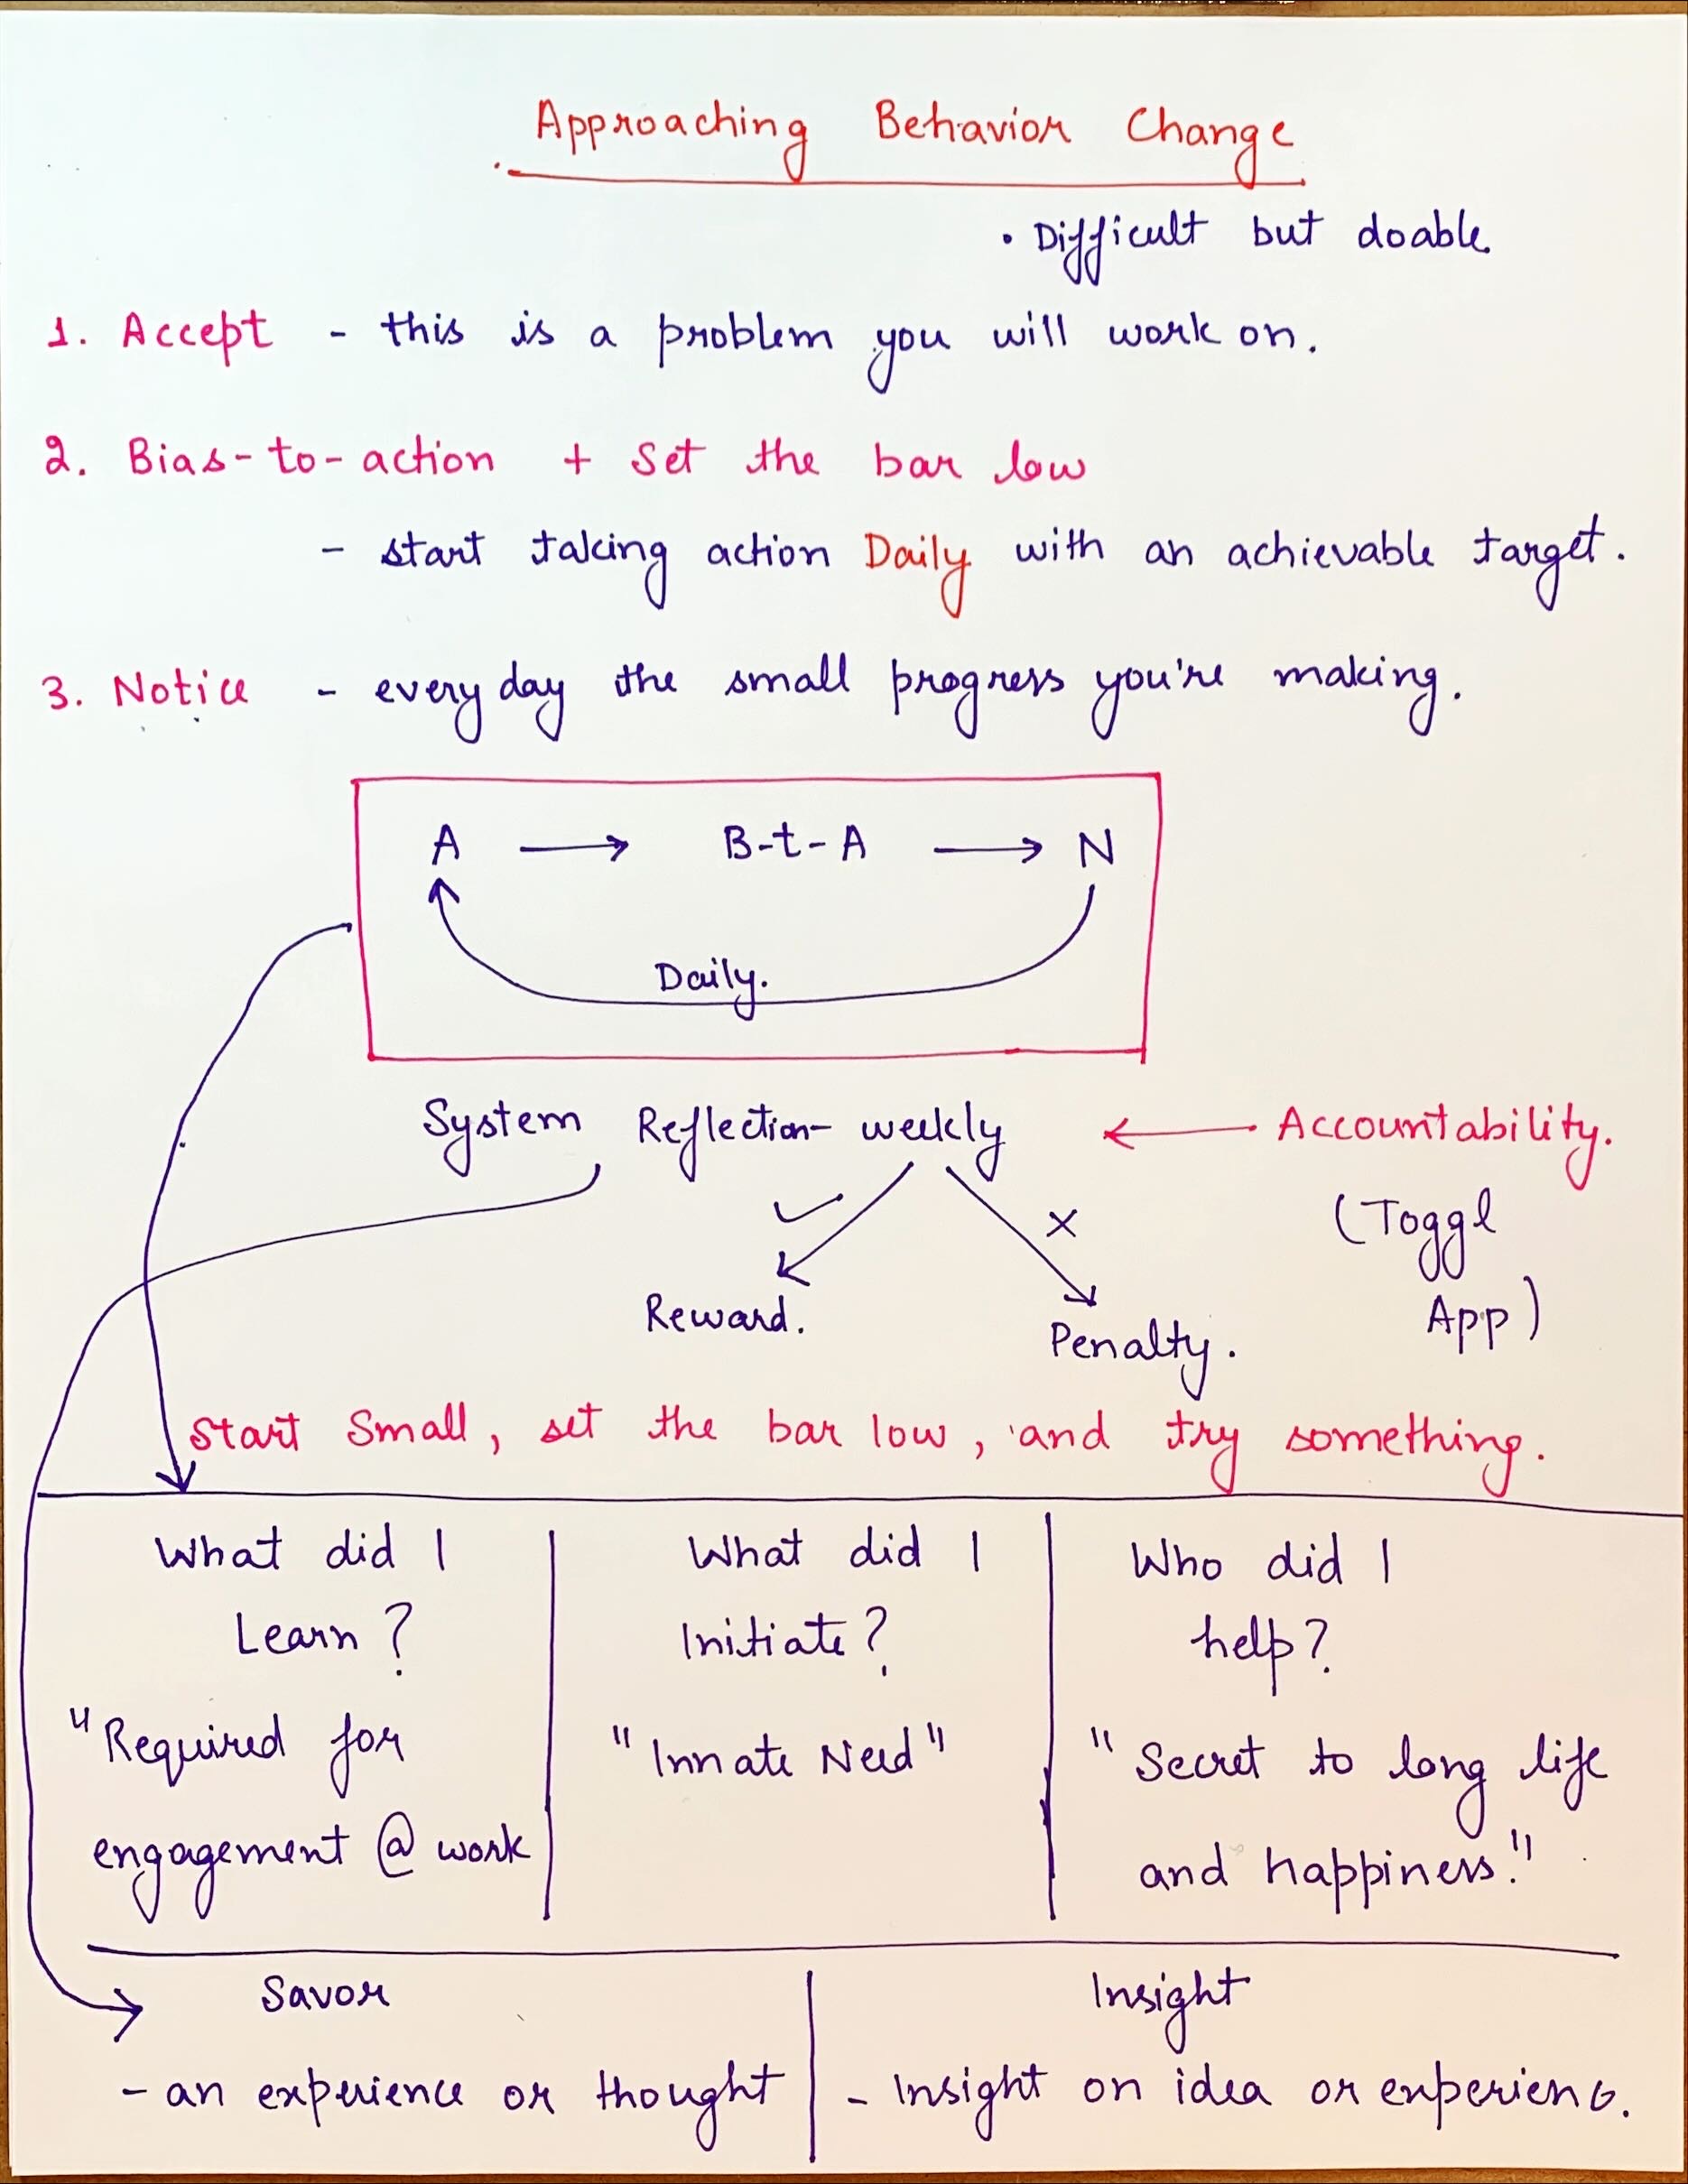 Approaching Behavior Change
• Difficult but doable
1. Accept - this is a problem you will work on.
2. Bias-to-action + Set the bar low
- start taking action Daily with an achievable target.
3. Notice - everyday the small progress you're making.
A → B-t-A → N
Daily.
System Reflection- weekly ← Accountability.
✓ x (Toggl
Reward. App)
Penalty.
Start Small, set the bar low, and try something.
What did I
Learn?
"Required for
engagement @ work
What did I
Initiate?
"Innate Need"
Who did I
help?
"Secret to long life
and happiness."
Savor
- an experience or thought
Insight
- Insight on idea or experience.